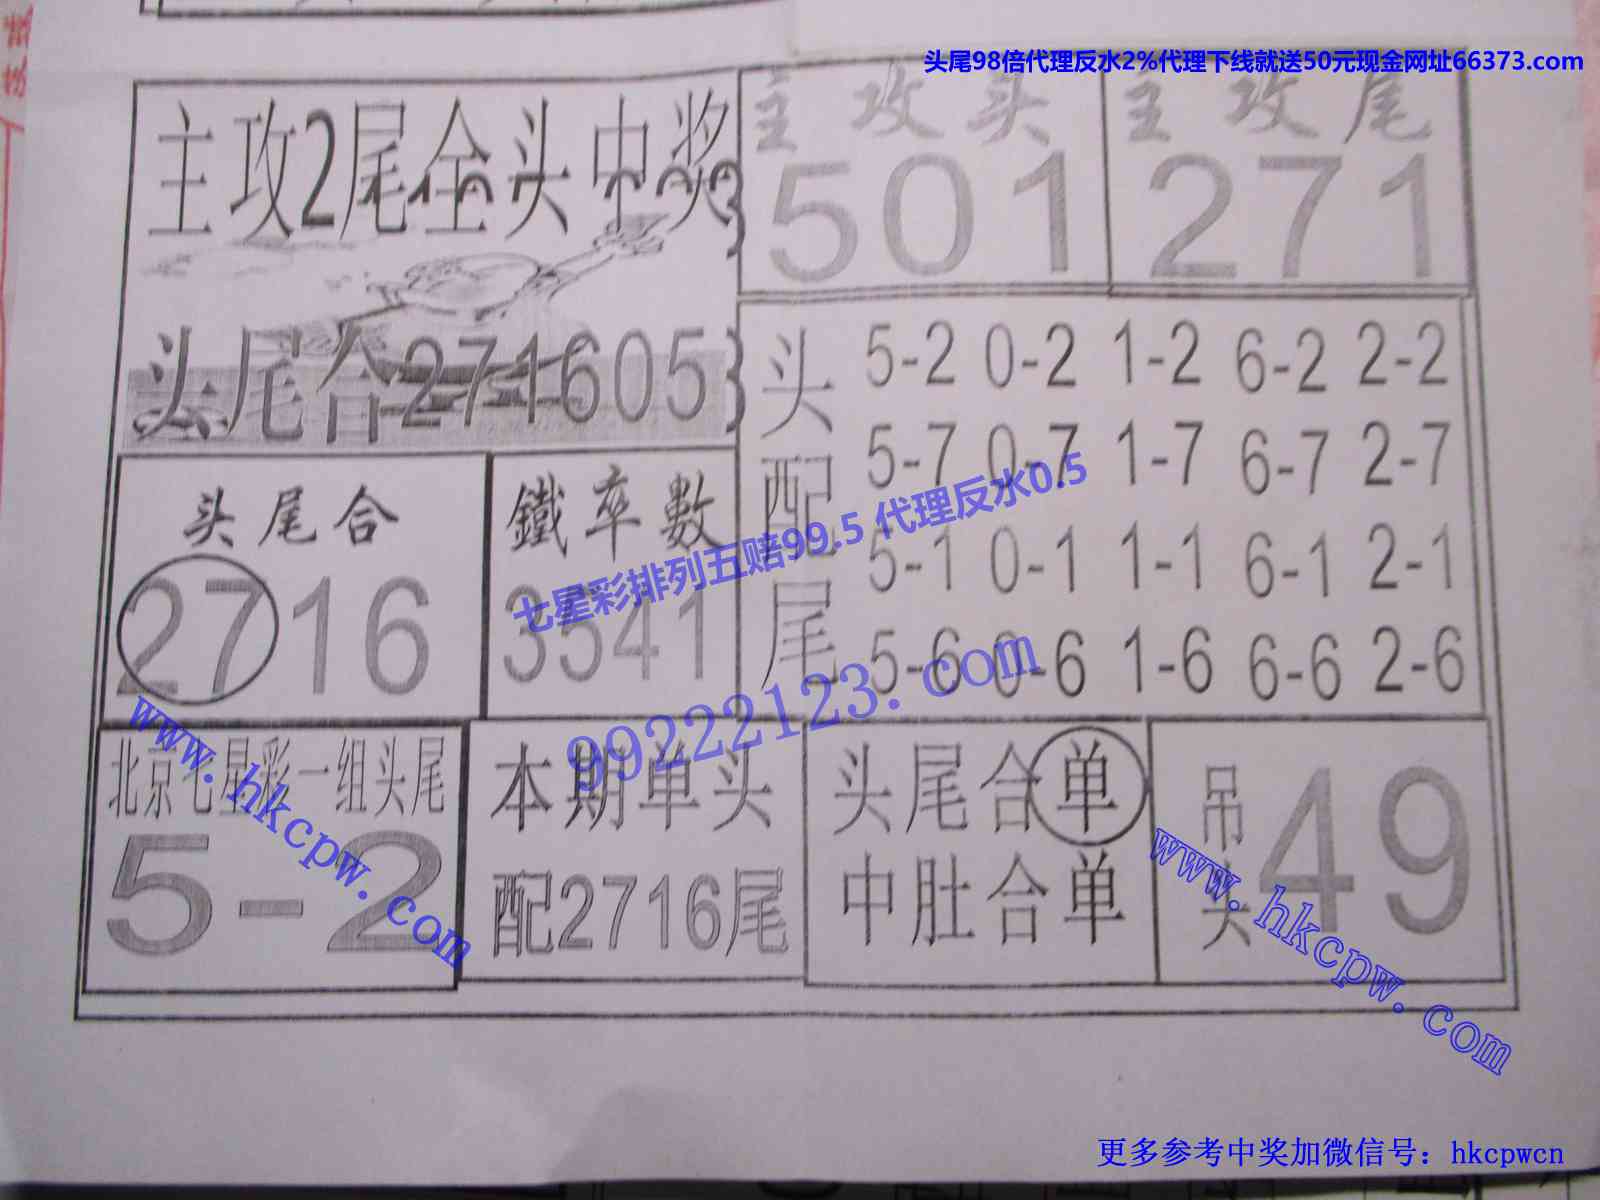 头尾98倍代理反水2%代理下线就送50元现金网址66373.com
主攻2尾全头中奖
主攻头
501
主攻尾
271
头尾合271605
头配尾
5-2 0-2 1-2 6-2 2-2
5-7 0-7 1-7 6-7 2-7
5-1 0-1 1-1 6-1 2-1
5-6 0-6 1-6 6-6 2-6
头尾合
2716
鐵卒數
3541
七星彩排列五赔99.5 代理反水0.5
99222123.com
北京七星彩一组头尾
5-2
www.hkcpw.com
本期单头
配2716尾
头尾合单
中肚合单
吊头
49
www.hkcpw.com
更多参考中奖加微信号：hkcpwcn